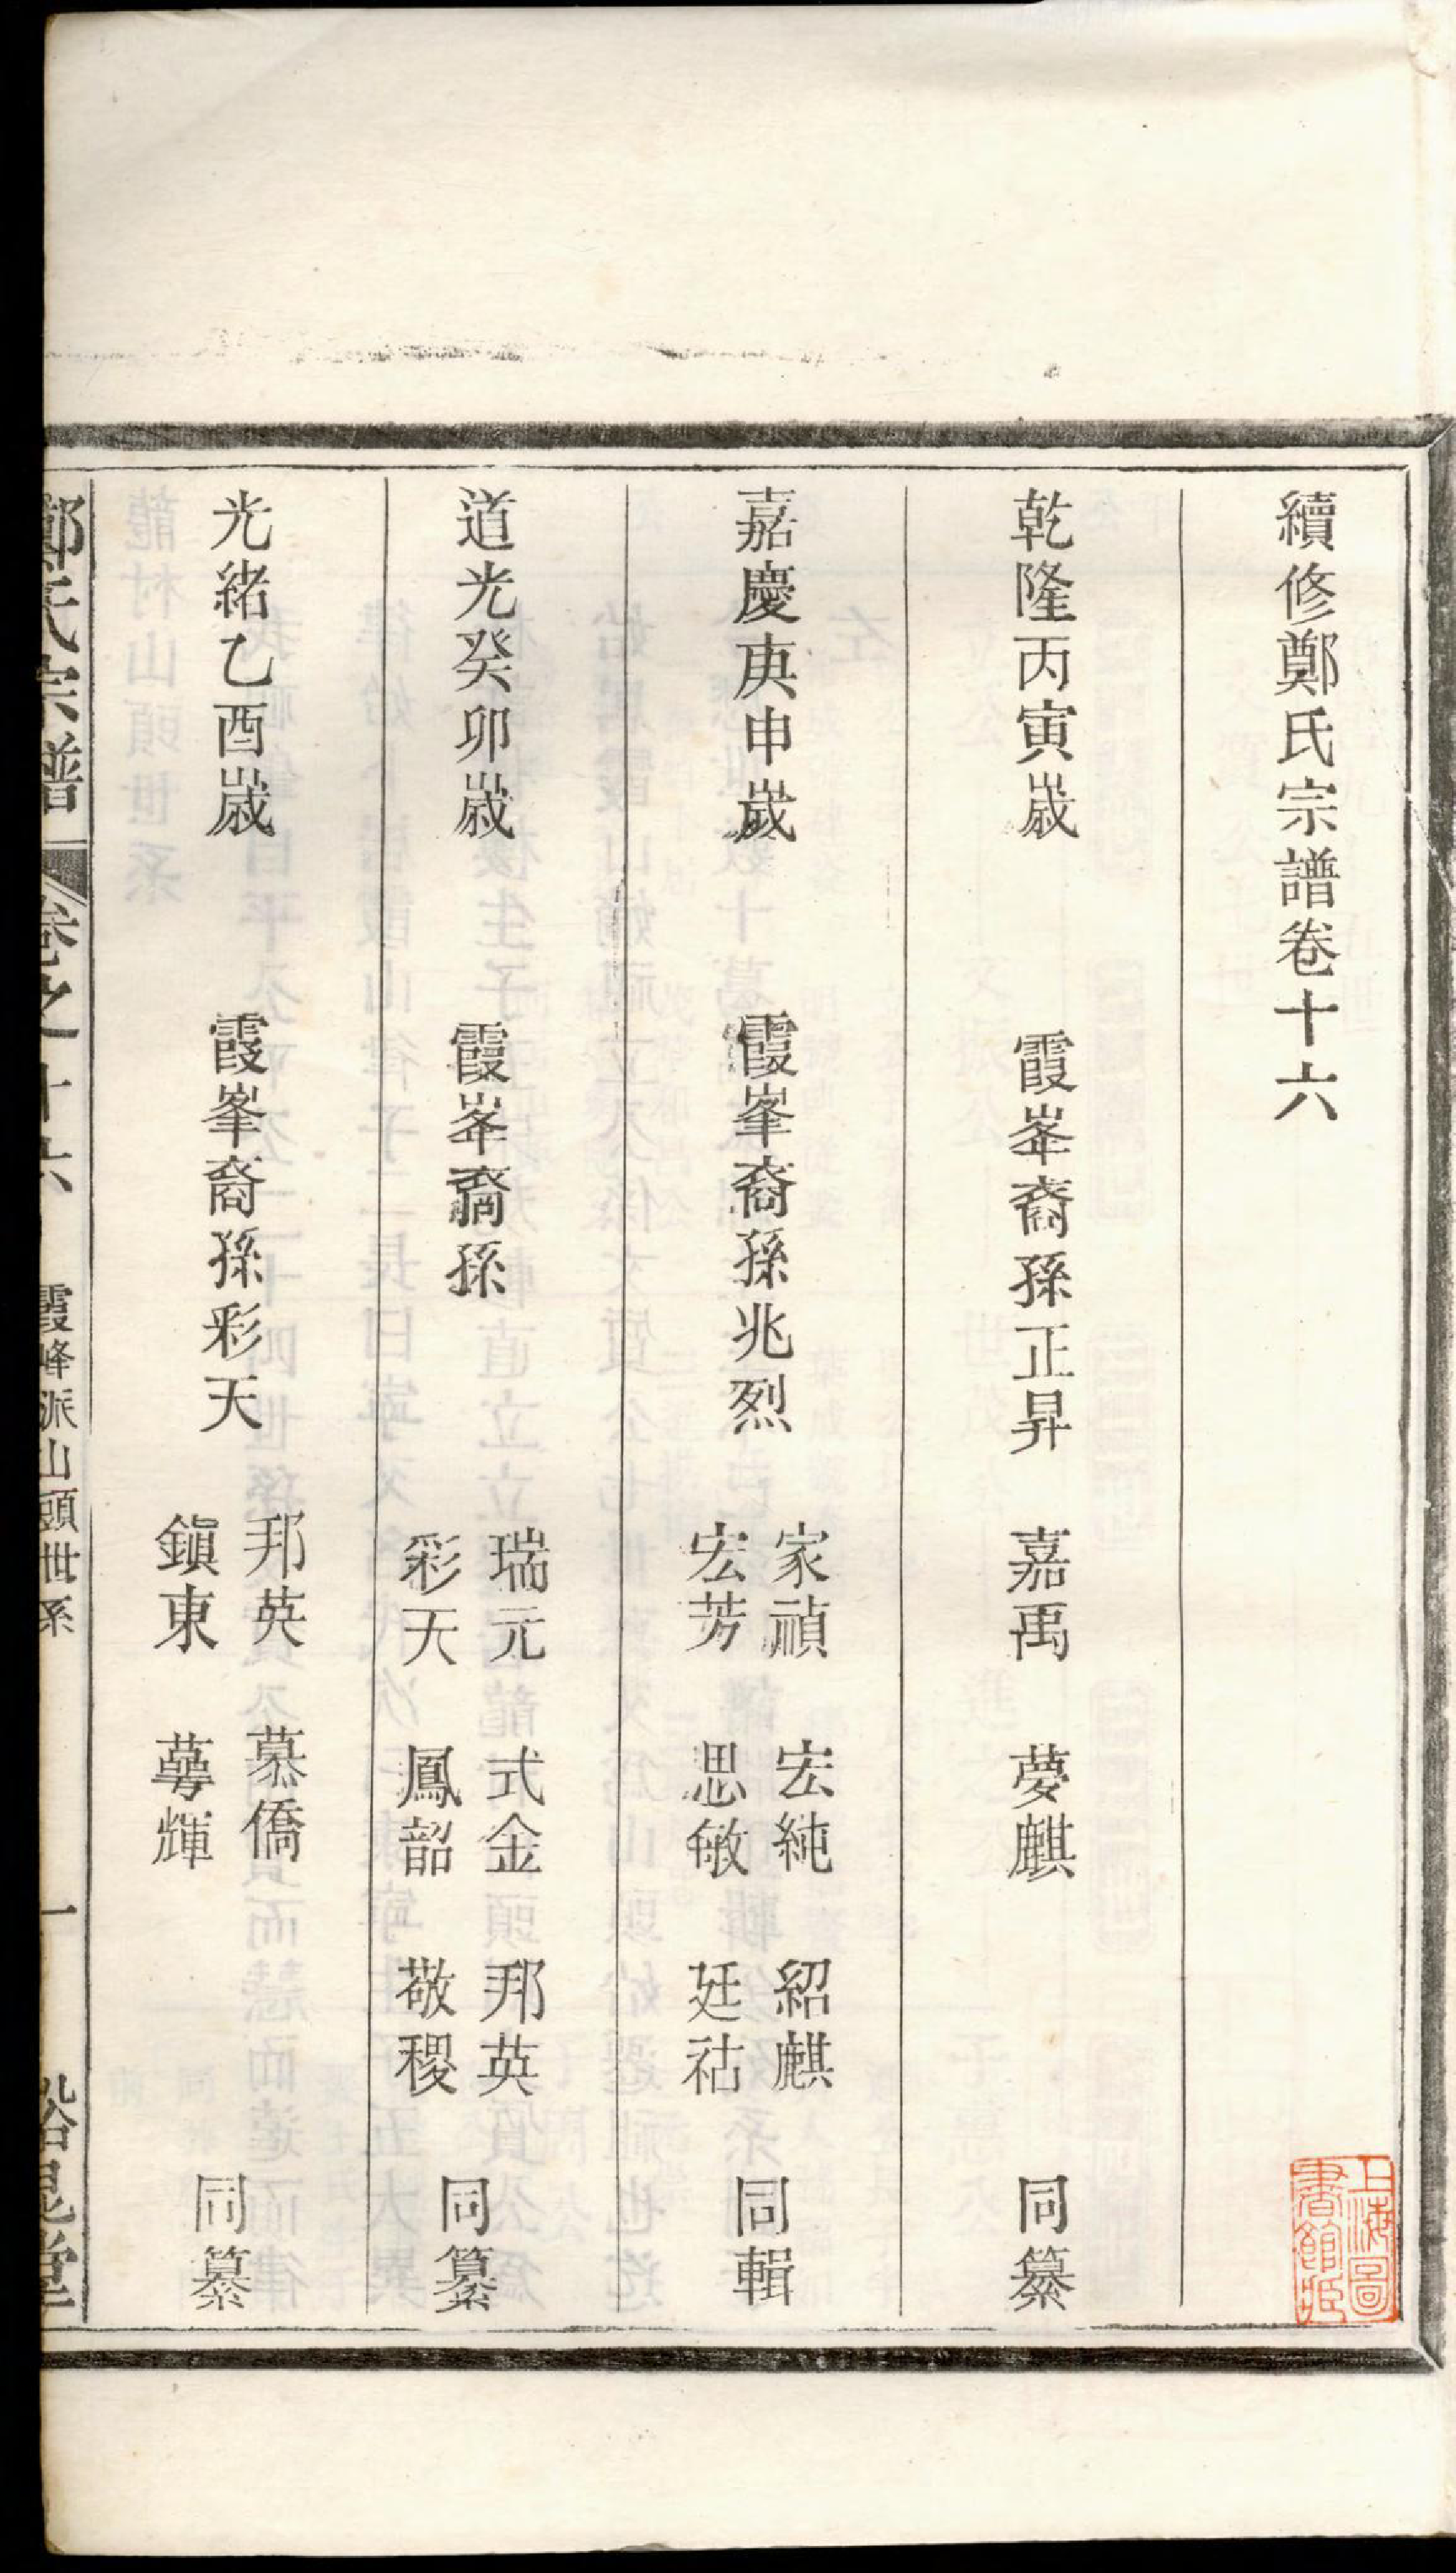 續修鄭氏宗譜卷十六
乾隆丙寅歲 霞峯裔孫正昇 嘉禹 夢麒 同纂
嘉慶庚申歲 霞峯裔孫兆烈 家禎 宏純 紹麒
宏芳 思敏 廷祜 同輯
道光癸卯歲 霞峯裔孫 瑞元 式金 邦英
彩天 鳳韶 敬稷 同纂
光緒乙酉歲 霞峯裔孫彩天 邦英 慕僑
鎮東 蕚輝 同纂
鄭氏宗譜 卷之十六 霞峰派山頭世系 一
上海圖書館藏